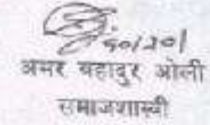 अमर बहादुर ओली
समाजशास्त्री